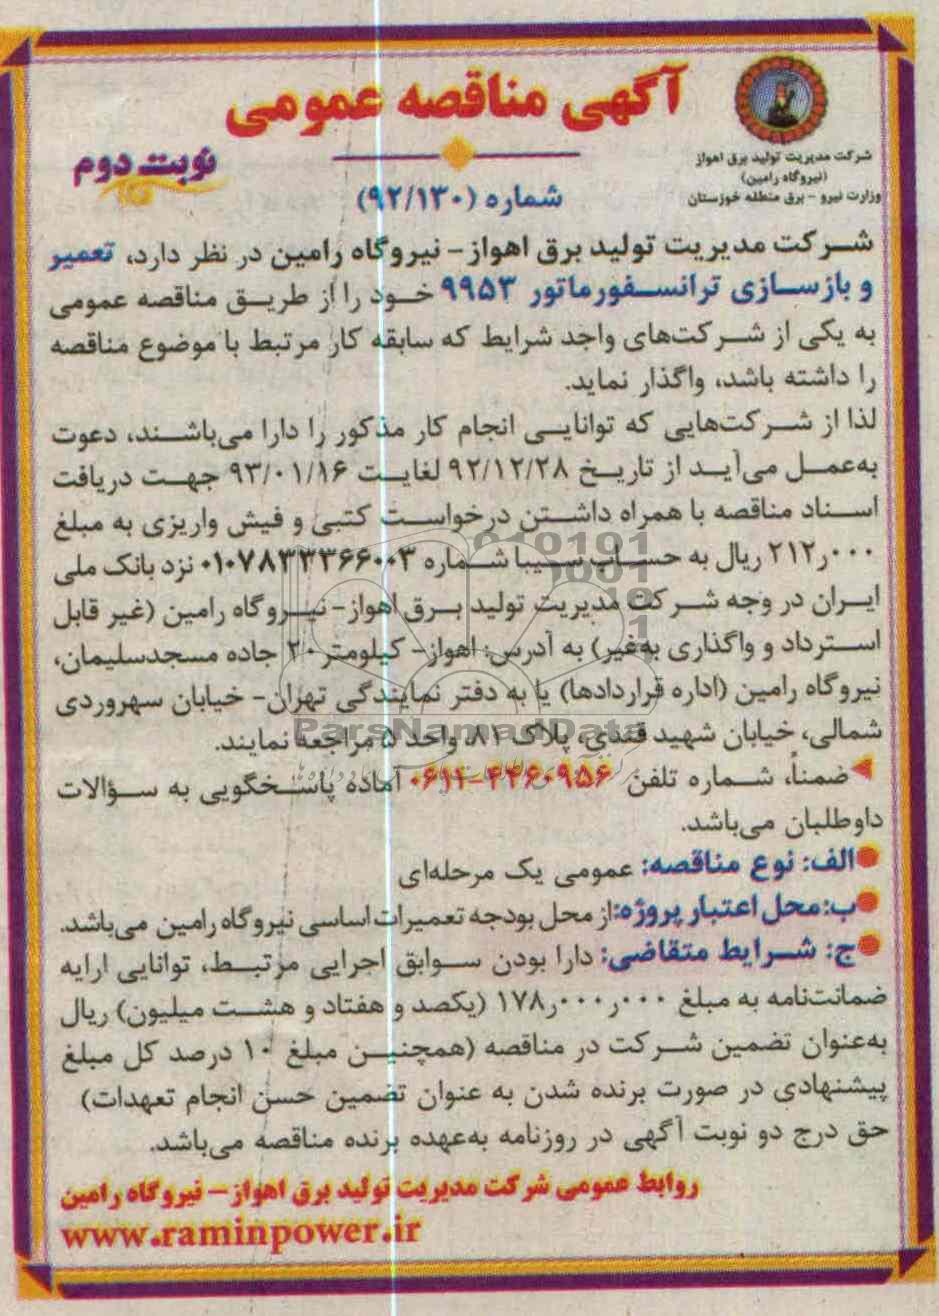 آگهی مناقصه عمومی
نوبت دوم
شرکت مدیریت تولید برق اهواز
(نیروگاه رامین)
وزارت نیرو - برق منطقه خوزستان
شماره (۹۲/۱۳۰)
شرکت مدیریت تولید برق اهواز- نیروگاه رامین در نظر دارد، تعمیر
و بازسازی ترانسفورماتور ۹۹۵۳ خود را از طریق مناقصه عمومی
به یکی از شرکت‌های واجد شرایط که سابقه کار مرتبط با موضوع مناقصه
را داشته باشد، واگذار نماید.
لذا از شرکت‌هایی که توانایی انجام کار مذکور را دارا می‌باشند، دعوت
به‌عمل می‌آید از تاریخ ۹۲/۱۲/۲۸ لغایت ۹۳/۰۱/۱۶ جهت دریافت
اسناد مناقصه با همراه داشتن درخواست کتبی و فیش واریزی به مبلغ
۲۱۲ر۰۰۰ ریال به حساب سیبا شماره ۰۱۰۷۸۳۳۳۶۶۰۰۳ نزد بانک ملی
ایران در وجه شرکت مدیریت تولید برق اهواز- نیروگاه رامین (غیر قابل
استرداد و واگذاری به‌غیر) به آدرس: اهواز- کیلومتر ۲۰ جاده مسجدسلیمان،
نیروگاه رامین (اداره قراردادها) یا به دفتر نمایندگی تهران- خیابان سهروردی
شمالی، خیابان شهید قندی، پلاک ۸۱، واحد ۵ مراجعه نمایند.
ParsNamadData
ضمناً، شماره تلفن ۰۶۱۱-۴۴۶۰۹۵۶ آماده پاسخگویی به سؤالات
داوطلبان می‌باشد.
الف: نوع مناقصه: عمومی یک مرحله‌ای
ب: محل اعتبار پروژه: از محل بودجه تعمیرات اساسی نیروگاه رامین می‌باشد.
ج: شرایط متقاضی: دارا بودن سوابق اجرایی مرتبط، توانایی ارایه
ضمانت‌نامه به مبلغ ۱۷۸ر۰۰۰ر۰۰۰ (یکصد و هفتاد و هشت میلیون) ریال
به‌عنوان تضمین شرکت در مناقصه (همچنین مبلغ ۱۰ درصد کل مبلغ
پیشنهادی در صورت برنده شدن به عنوان تضمین حسن انجام تعهدات)
حق درج دو نوبت آگهی در روزنامه به‌عهده برنده مناقصه می‌باشد.
روابط عمومی شرکت مدیریت تولید برق اهواز- نیروگاه رامین
www.raminpower.ir